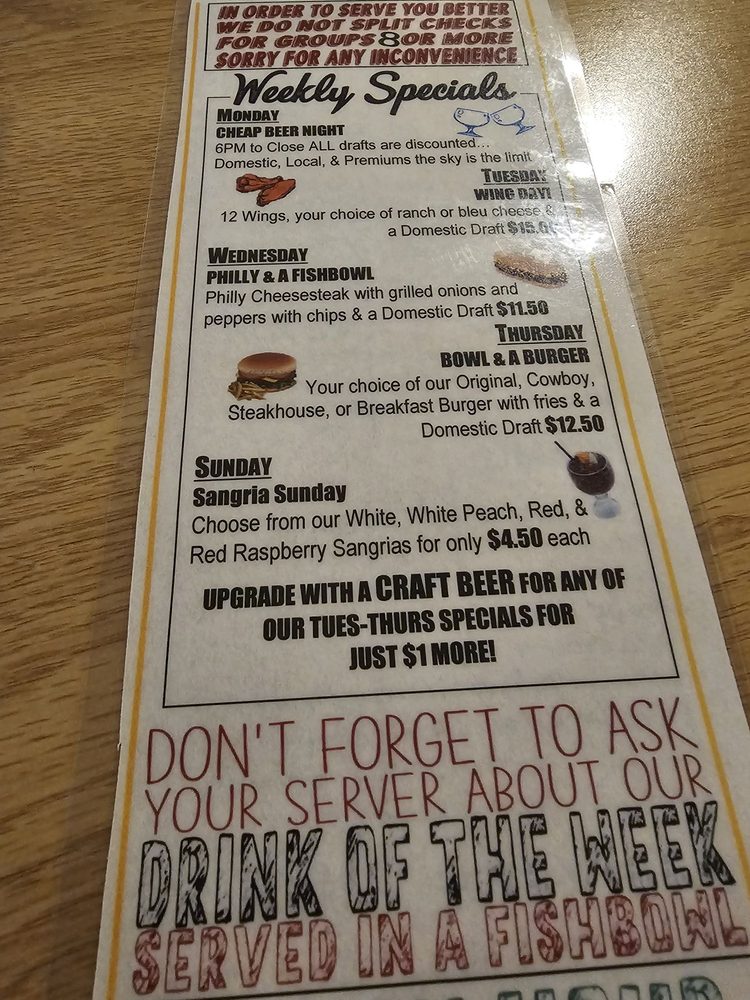 IN ORDER TO SERVE YOU BETTER
WE DO NOT SPLIT CHECKS
FOR GROUPS 8 OR MORE
SORRY FOR ANY INCONVENIENCE
Weekly Specials
MONDAY
CHEAP BEER NIGHT
6PM to Close ALL drafts are discounted...
Domestic, Local, & Premiums the sky is the limit
TUESDAY
WING DAY!
12 Wings, your choice of ranch or bleu cheese &
a Domestic Draft
WEDNESDAY
PHILLY & A FISHBOWL
Philly Cheesesteak with grilled onions and
peppers with chips & a Domestic Draft $11.50
THURSDAY
BOWL & A BURGER
Your choice of our Original, Cowboy,
Steakhouse, or Breakfast Burger with fries & a
Domestic Draft $12.50
SUNDAY
Sangria Sunday
Choose from our White, White Peach, Red, &
Red Raspberry Sangrias for only $4.50 each
UPGRADE WITH A CRAFT BEER FOR ANY OF
OUR TUES-THURS SPECIALS FOR
JUST $1 MORE!
DON'T FORGET TO ASK
YOUR SERVER ABOUT OUR
DRINK OF THE WEEK
SERVED IN A FISHBOWL